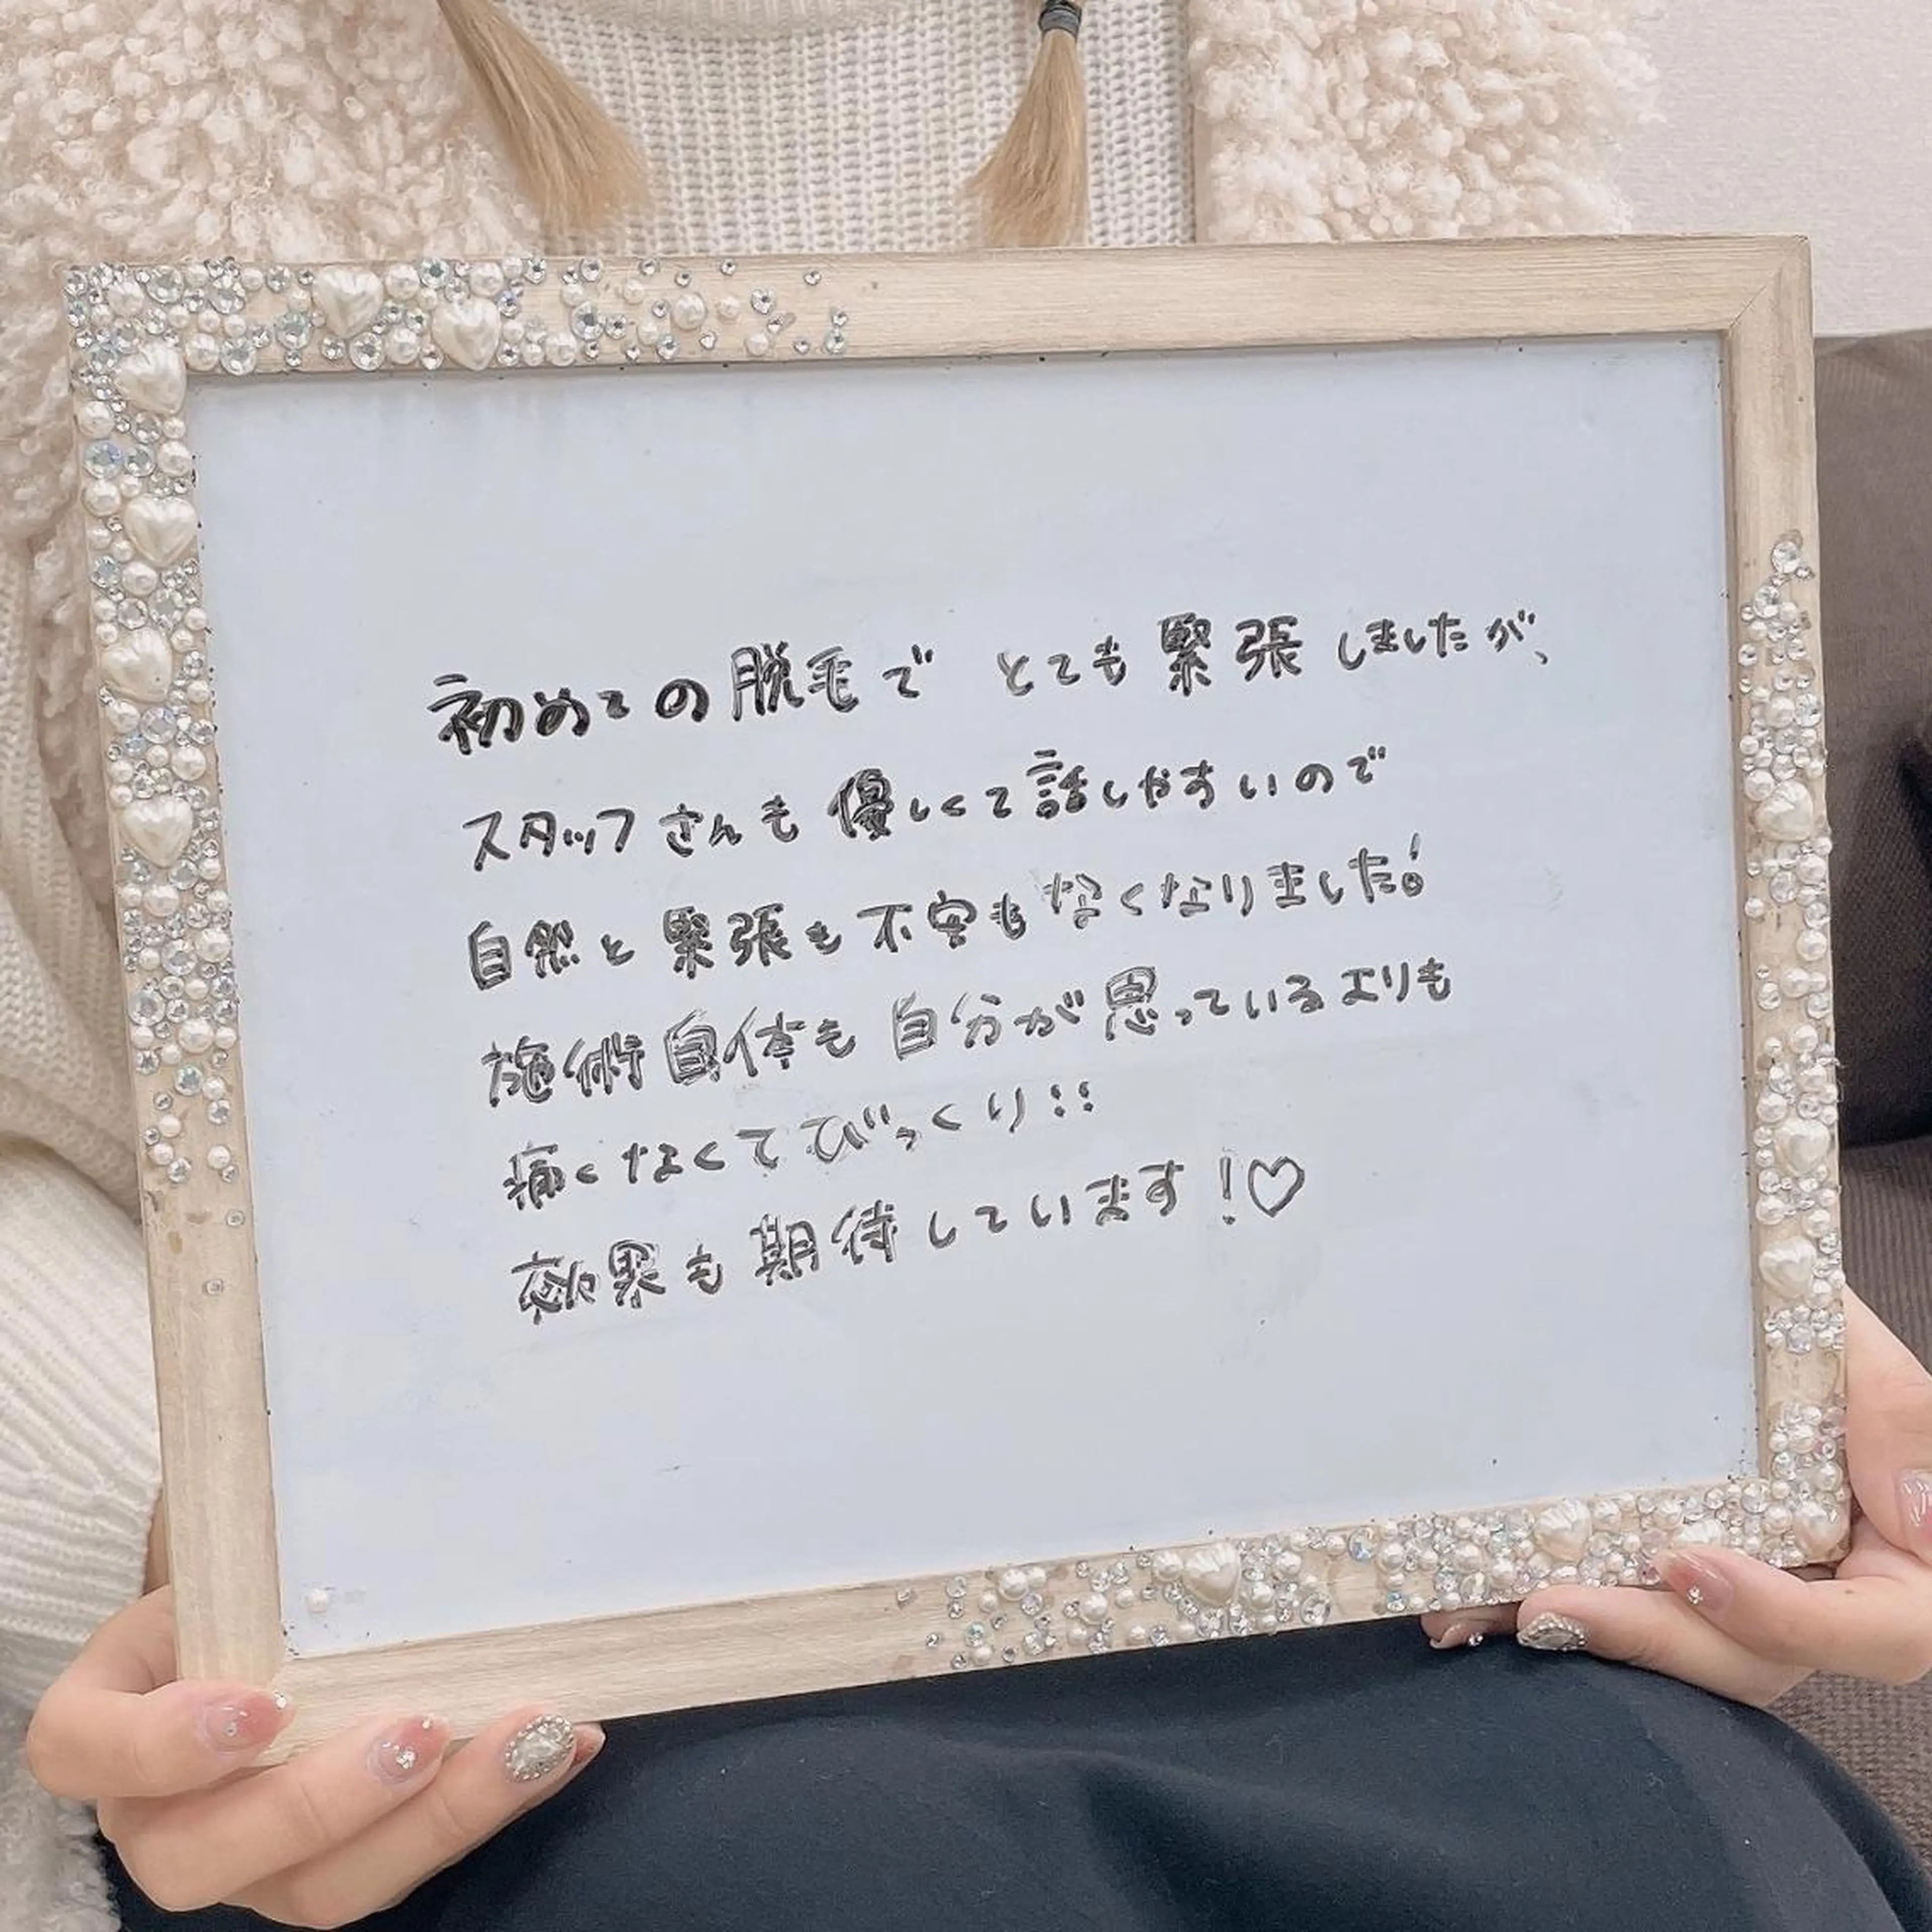 初めての脱毛で とても緊張しましたが、
スタッフさんも優しくて話しやすいので
自然と緊張も不安もなくなりました!
施術自体も自分が思っているよりも
痛くなくてびっくり!!
効果も期待しています!♡